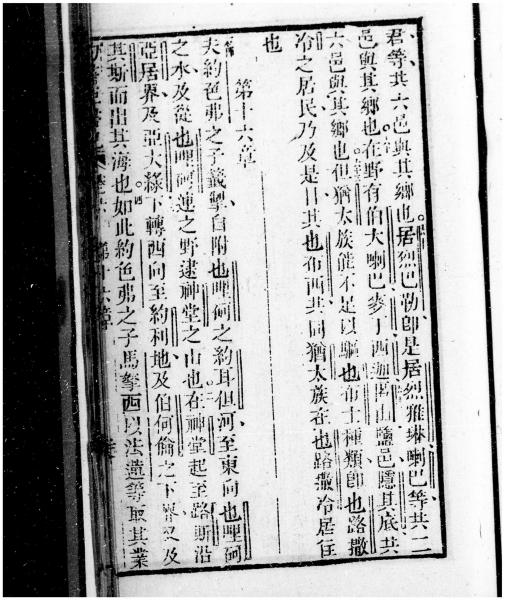 君等共六邑與其鄉也居烈巴勒即是居烈雅琳喇巴等共二
邑與其鄉也在野有伯大喇巴麥丁西迦因山鹽邑隱其底共
六邑與其鄉也但猶太族能不足以驅也布士種類即也路撒
冷之居民乃及是日其也布西共同猶太族在也路撒冷居住
也
第十六章
夫約色弗之子籤掣自附也哩何之約耳但河至東向也哩何
之水及從也哩何蓮之野逮神堂之山也在神堂起至路斯沿
亞居界及亞大綠下轉西向至約利地及伯何倫之下界及
其斯而出其海也如此約色弗之子馬拏西以法蓮等取其業
第十六章